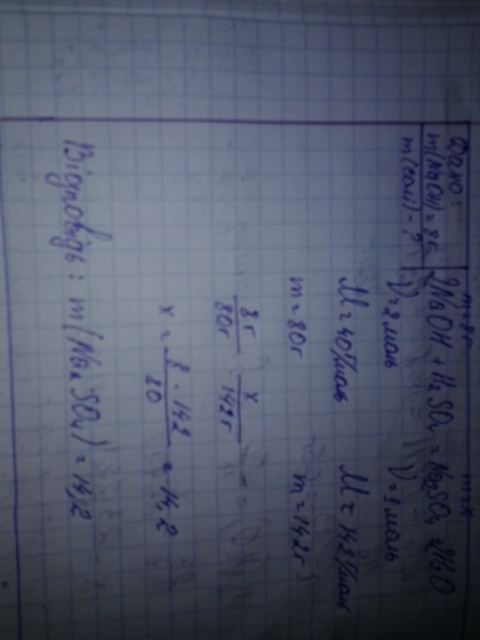 Дано:
m(NaOH) = 8г
m(солі) - ?
m = 8г m = x
2NaOH + H₂SO₄ = Na₂SO₄ + 2H₂O
V = 2 моль V = 1 моль
M = 40г/моль M = 142г/моль
m = 80г m = 142г
8г/80г x/142г
x = 8 · 142/80 = 14,2
Відповідь: m(Na₂SO₄) = 14,2